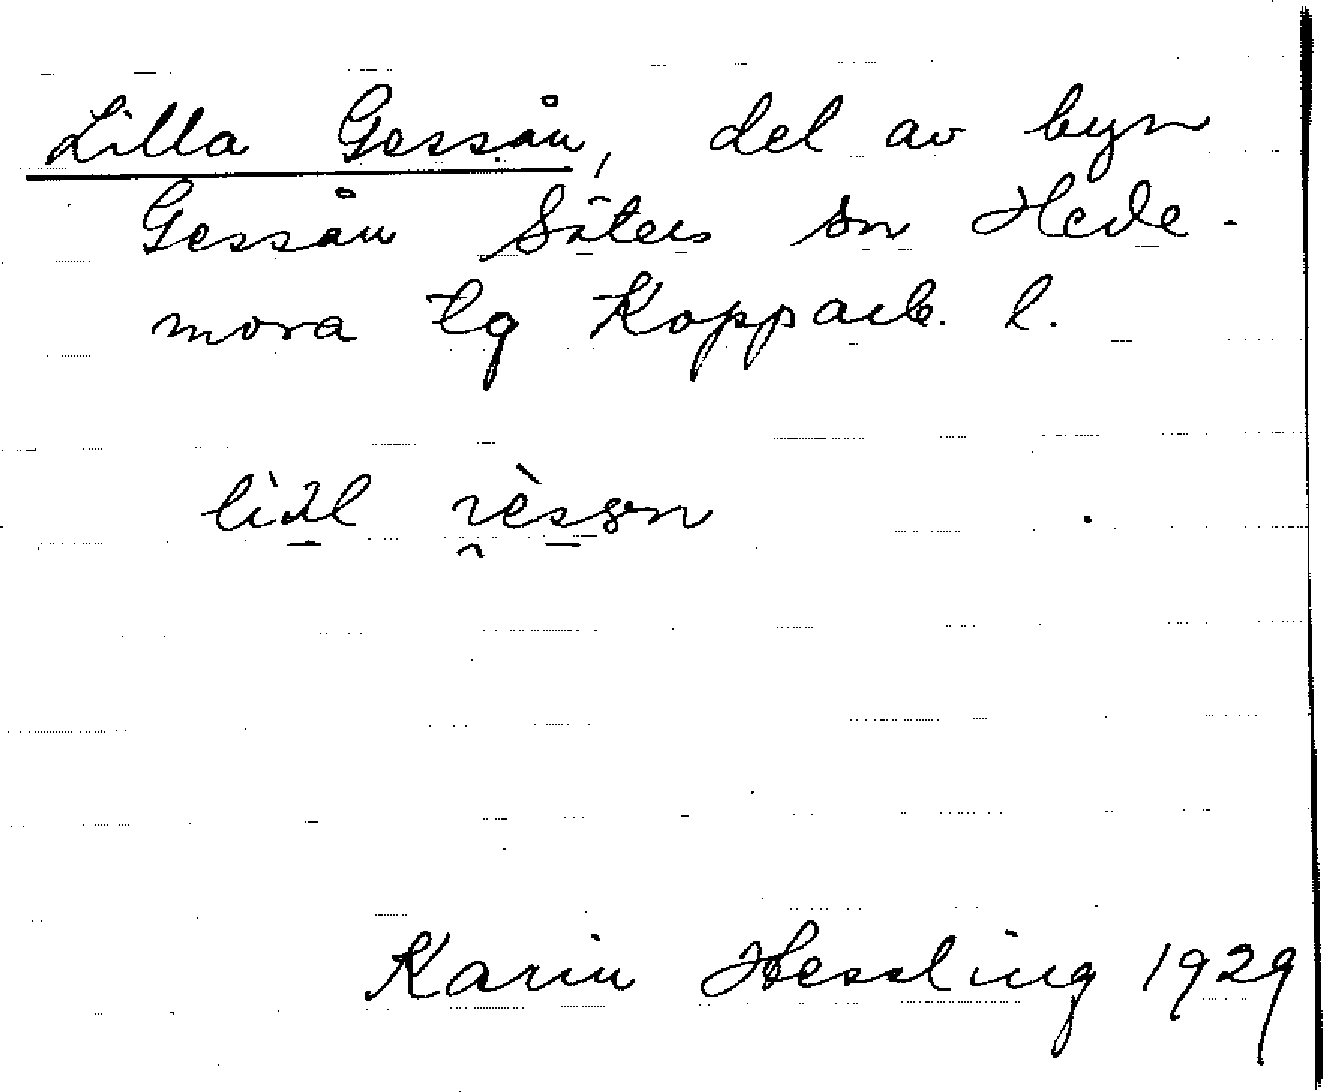 Lilla Gessån, del av byn
Gessån Säters sn Hede-
mora tg Kopparb. l.
Karin Hessling 1929